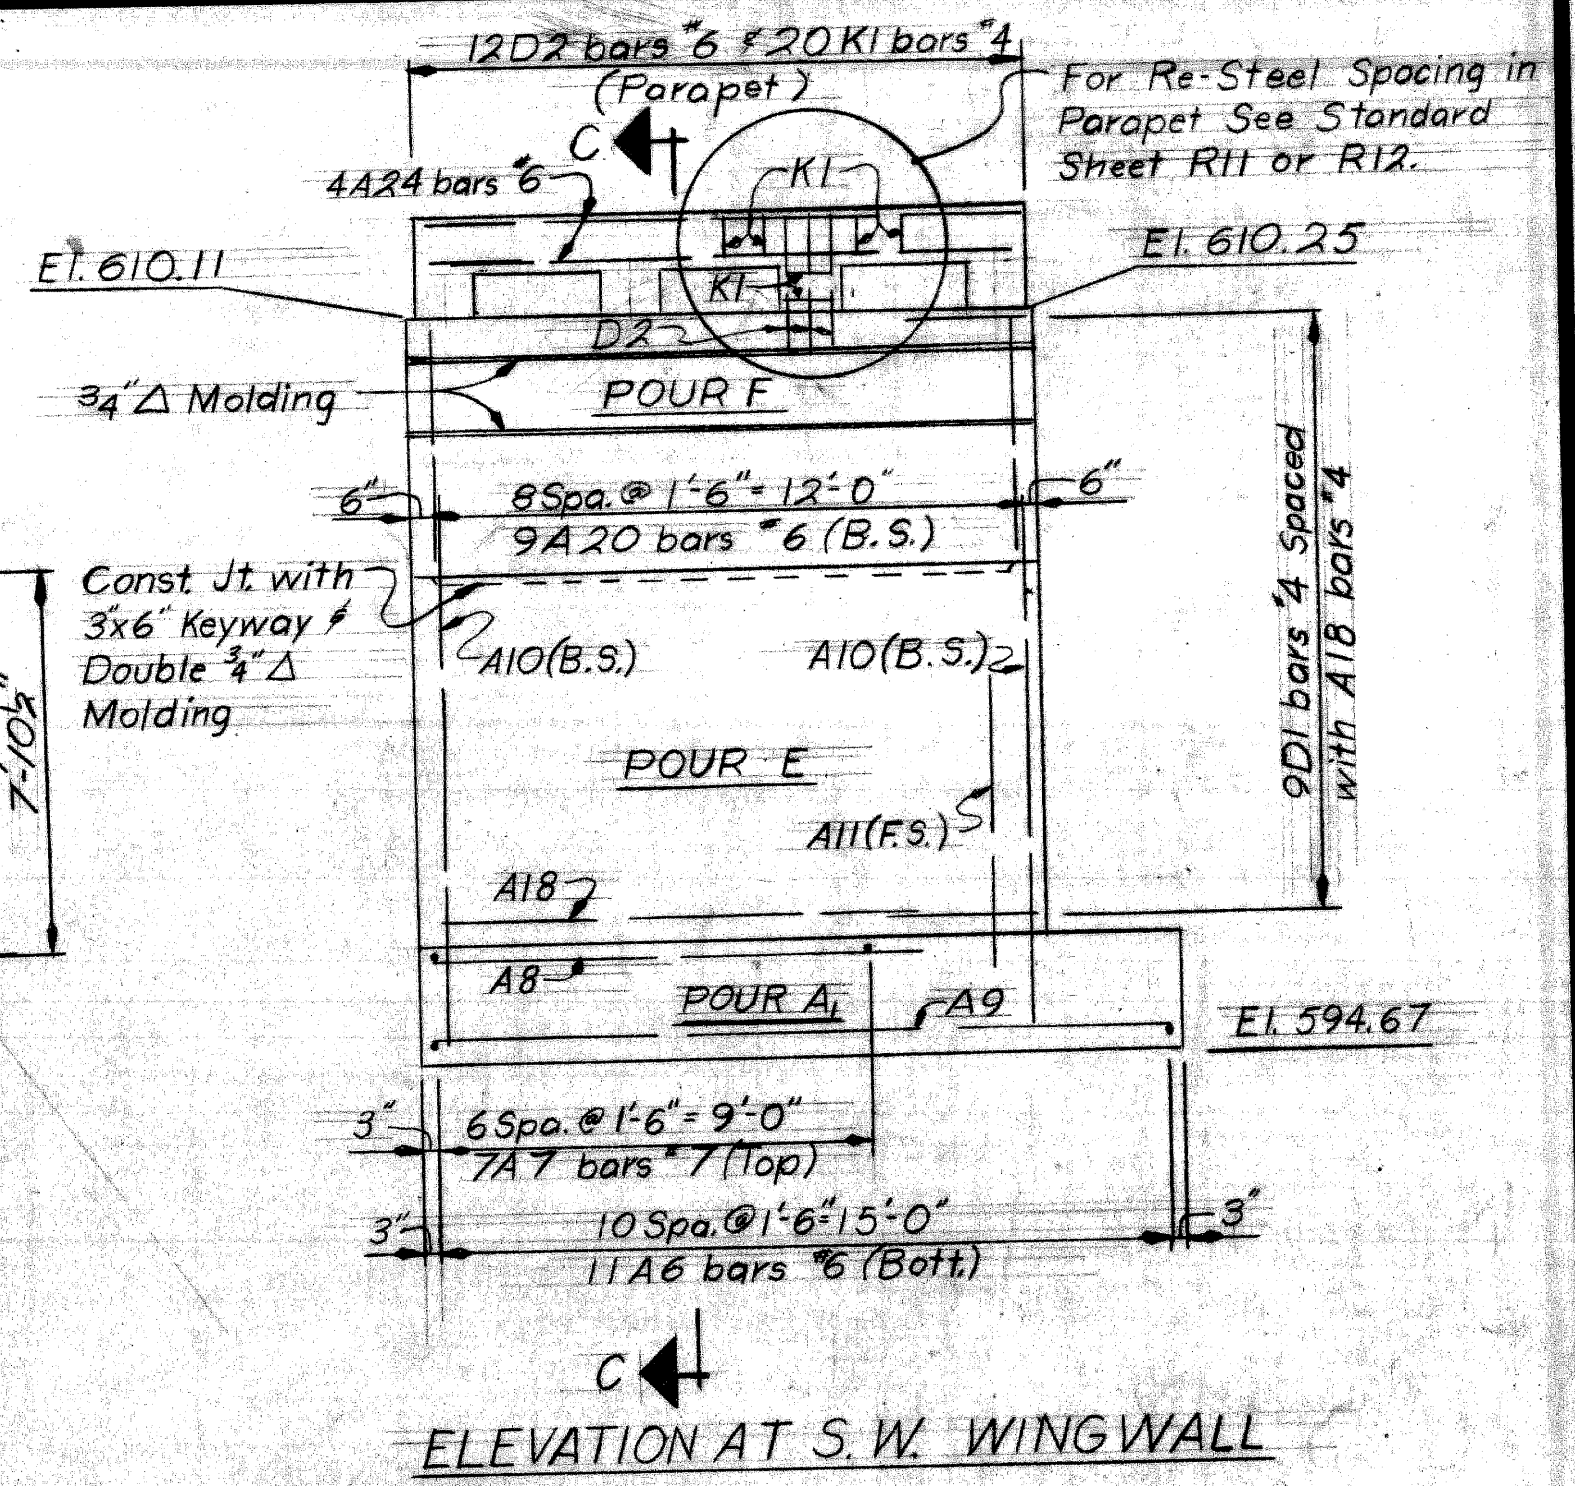 12D2 bars #6 & 20 K1 bars #4
(Parapet)
For Re-Steel Spacing in
Parapet See Standard
Sheet R11 or R12.
C
4A24 bars #6
K1
El. 610.11
El. 610.25
K1
D2
3/4" △ Molding
POUR F
6"
8 Spa. @ 1'-6" = 12'-0"
6"
9A20 bars #6 (B.S.)
9D1 bars #4 Spaced
with A18 bars #4
Const. Jt. with
3"x6" Keyway &
Double 3/4" △
Molding
A10 (B.S.)
A10 (B.S.)
7'-10½"
POUR E
A11 (F.S.)
A18
A8
POUR A1
A9
El. 594.67
3"
6 Spa. @ 1'-6" = 9'-0"
7A7 bars #7 (Top)
3"
10 Spa. @ 1'-6" = 15'-0"
3"
11A6 bars #6 (Bott.)
C
ELEVATION AT S. W. WINGWALL